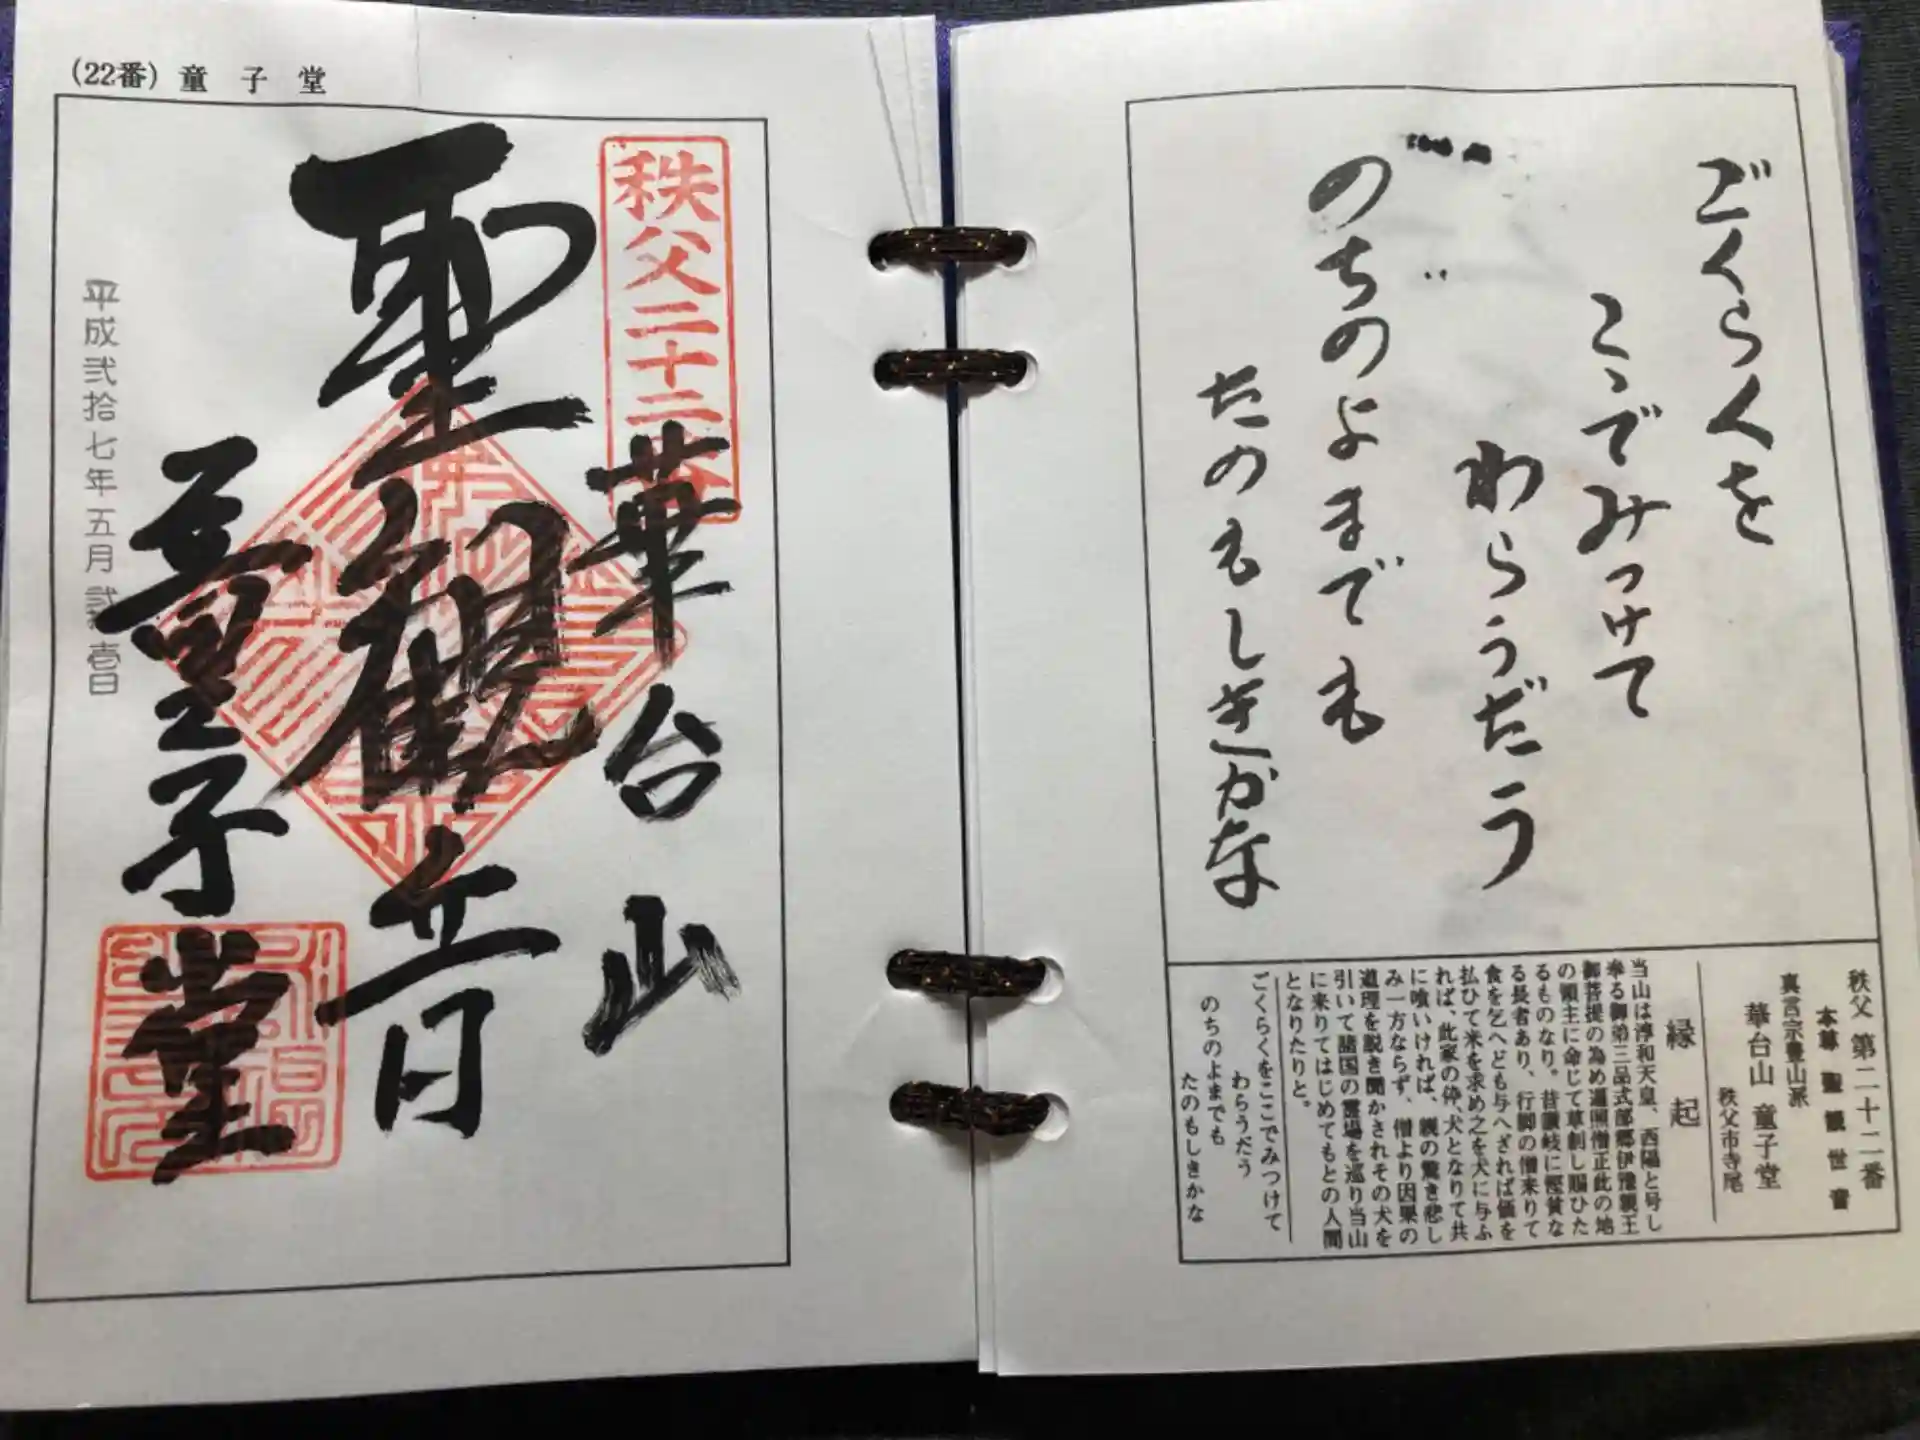 (22番) 童子堂
秩父二十二番
華台山
聖観音
童子堂
平成弐拾七年五月弐拾壱日
ごくらくを
こゝでみつけて
わらうだう
のちのよまでも
たのもしきかな
秩父 第二十二番
本尊 聖観世音
真言宗豊山派
華台山 童子堂
秩父市寺尾
縁起
当山は淳和天皇、西陽と号し
奉る御弟三品式部郷伊豫親王
御菩提の為め遍照僧正此の地
の領主に命じて草創し賜ひた
るものなり。昔讃岐に慳貧な
る長者あり、行脚の僧来りて
食を乞へども与へざれば価を
払ひて米を求め之を犬に与ふ
れば、此家の伜、犬となりて共
に喰いければ、親の驚き悲し
み一方ならず、僧より因果の
道理を説き聞かされその犬を
引いて諸国の霊場を巡り当山
に来りてはじめてもとの人間
となりたりと。
ごくらくをここでみつけて
わらうだう
のちのよまでも
たのもしきかな